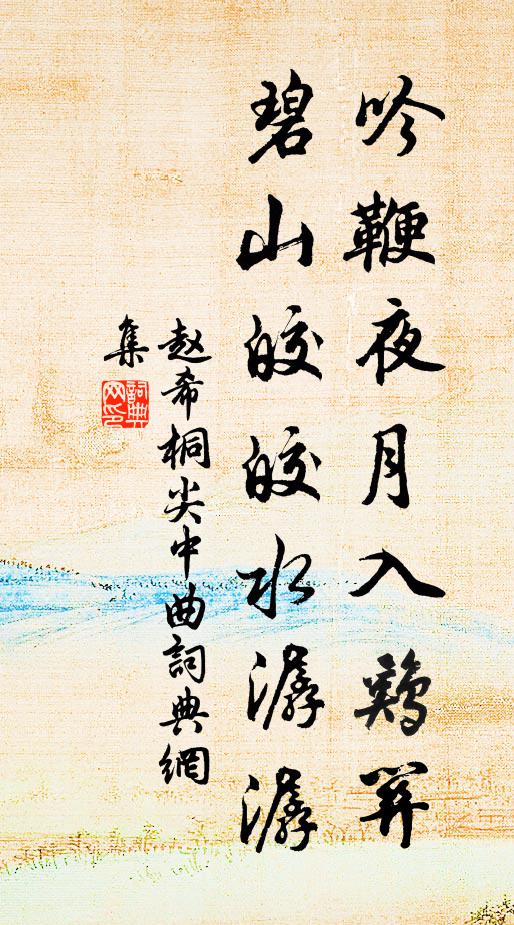 吟鞭夜月入鷄關
碧山皎皎水潺潺
赵希桐尖中曲詞典網
集
詞典網印